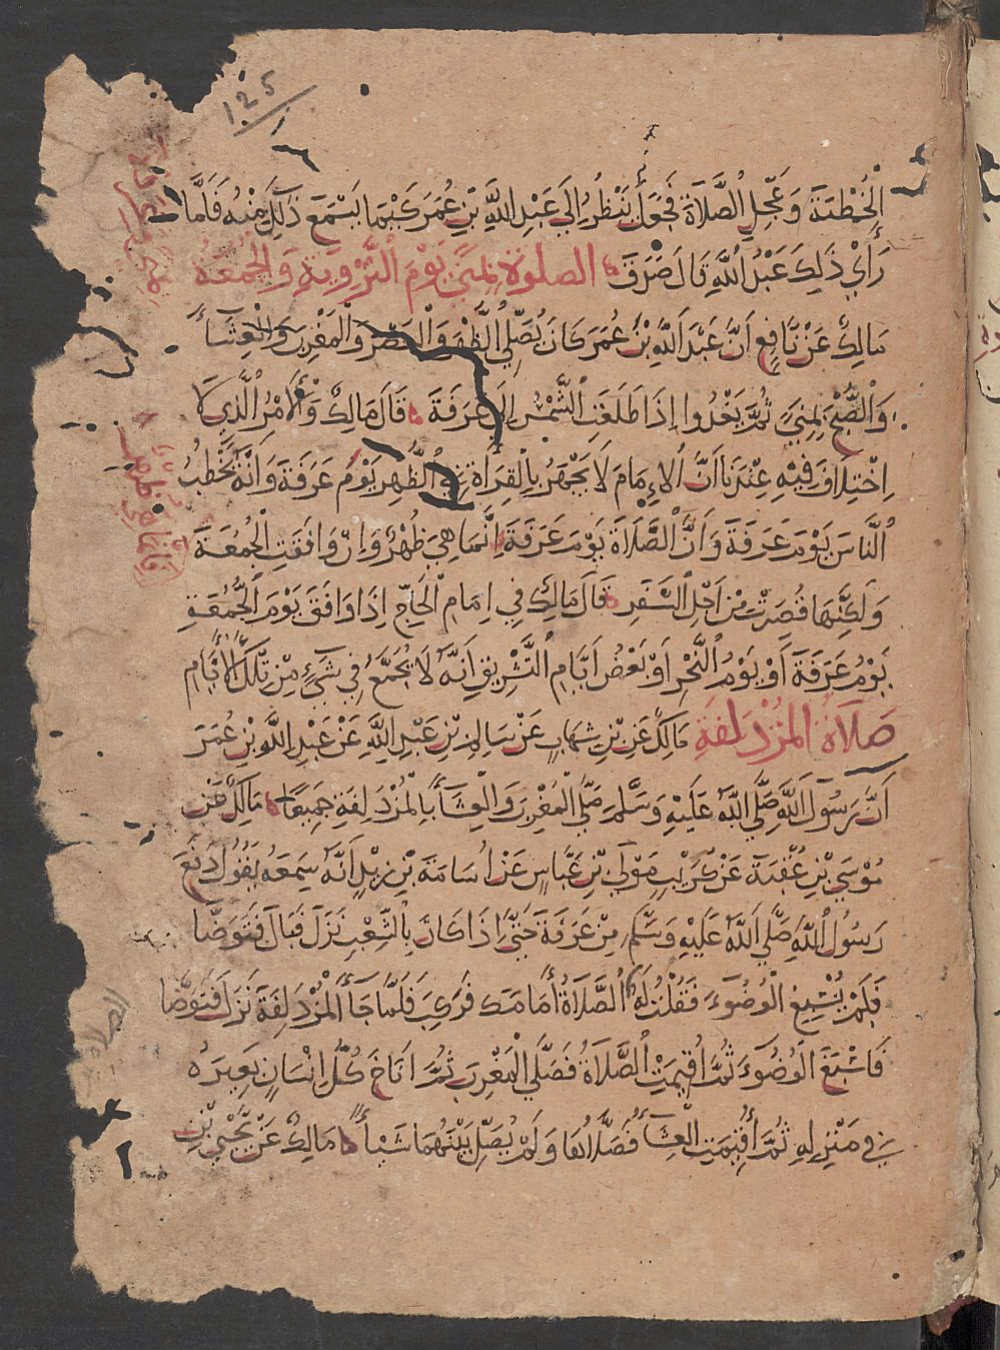 125
الْخُطْبَةَ وَعَجِّلِ الصَّلَاةَ فَجَعَلَ يَنْظُرُ إِلَى عَبْدِ اللَّهِ بْنِ عُمَرَ كَيْمَا يَسْمَعَ ذَلِكَ مِنْهُ فَلَمَّا
رَأَى ذَلِكَ عَبْدُ اللَّهِ قَالَ صَدَقَ الصلوة بِمِنًى يَوْمَ التَّرْوِيَةِ وَالْجُمُعَة
مَالِكٌ عَنْ نَافِعٍ أَنَّ عَبْدَ اللَّهِ بْنَ عُمَرَ كَانَ يُصَلِّي الظُّهْرَ وَالْعَصْرَ وَالْمَغْرِبَ وَالْعِشَاءَ
وَالصُّبْحَ بِمِنًى ثُمَّ يَغْدُوا إِذَا طَلَعَتِ الشَّمْسُ إِلَى عَرَفَةَ قَالَ مَالِكٌ وَالْأَمْرُ الَّذِي لَا
اِخْتِلَافَ فِيْهِ عِنْدَنَا أَنَّ الْإِمَامَ لَا يَجْهَرُ بِالْقِرَأَةِ فِي الظُّهْرِ يَوْمَ عَرَفَةَ وَأَنَّهُ يَخْطُبُ
النَّاسَ يَوْمَ عَرَفَةَ وَأَنَّ الصَّلَاةَ يَوْمَ عَرَفَةَ إِنَّمَا هِيَ ظُهْرٌ وَإِنْ وَافَقَتِ الْجُمُعَةَ
وَلَكِنَّهَا قُصِرَتْ مِنْ اَجْلِ السَّفَرِ قَالَ مَالِكٌ فِي اِمَامِ الْحَاجِّ اِذَا وَافَقَ يَوْمَ الْجُمُعَةِ
يَوْمُ عَرَفَةَ أَوْ يَوْمُ النَّحْرِ أَوْ بَعْضُ أَيَّامِ التَّشْرِيقِ اَنَّهُ لَا يُجَمِّعُ فِي شَيْءٍ مِنْ تِلْكَ الْأَيَّامِ
صَلَاةُ الْمُزْدَلِفَةِ مَالِكٌ عَنِ بْنِ شِهَابٍ عَنْ سَالِمِ بْنِ عَبْدِ اللَّهِ عَنْ عَبْدِ اللَّهِ بْنِ عُمَرَ
اَنَّ رَسُولَ اللَّهِ صَلَّى اللَّهُ عَلَيْهِ وَسَلَّمَ صَلَّى الْمَغْرِبَ وَالْعِشَآءَ بِالْمُزْدَلِفَةِ جَمِيعًا مَالِكٌ عَنْ
مُوْسَى بْنِ عُقْبَةَ عَنْ كُرَيْبٍ مَوْلَى بْنِ عَبَّاسٍ عَنْ اُسَامَةَ بْنِ زَيْدٍ اَنَّهُ سَمِعَهُ يَقُولُ دَفَعَ
رَسُولُ اللَّهِ صَلَّى اللَّهُ عَلَيْهِ وَسَلَّمَ مِنْ عَرَفَةَ حَتَّى اِذَا كَانَ بِالشِّعْبِ نَزَلَ فَبَالَ فَتَوَضَّا
فَلَمْ يُسْبِغِ الْوُضُوءَ فَقُلْتُ لَهُ الصَّلَاةُ أَمَامَكَ فَرَكِبَ فَلَمَّا جَآءَ الْمُزْدَلِفَةَ نَزَلَ فَتَوَضَّا
فَاَسْبَغَ الْوُضُوءَ ثُمَّ اُقِيمَتِ الصَّلَاةُ فَصَلَّى الْمَغْرِبَ ثُمَّ اَنَاخَ كُلُّ اِنْسَانٍ بَعِيرَهُ
فِي مَنْزِلِهِ ثُمَّ أُقِيمَتِ الْعِشَآءُ فَصَلَّاهَا وَلَمْ يُصَلِّ بَيْنَهُمَا شَيْأً مَالِكٌ عَنْ يَحْيَى بْنِ